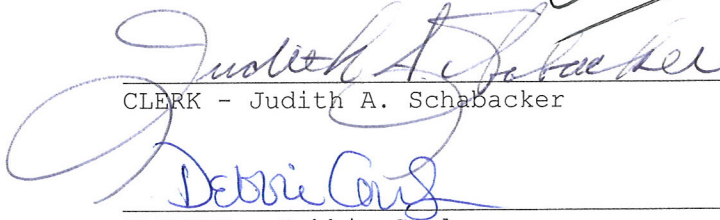 Judith A. Schabacker
CLERK - Judith A. Schabacker
Debbie